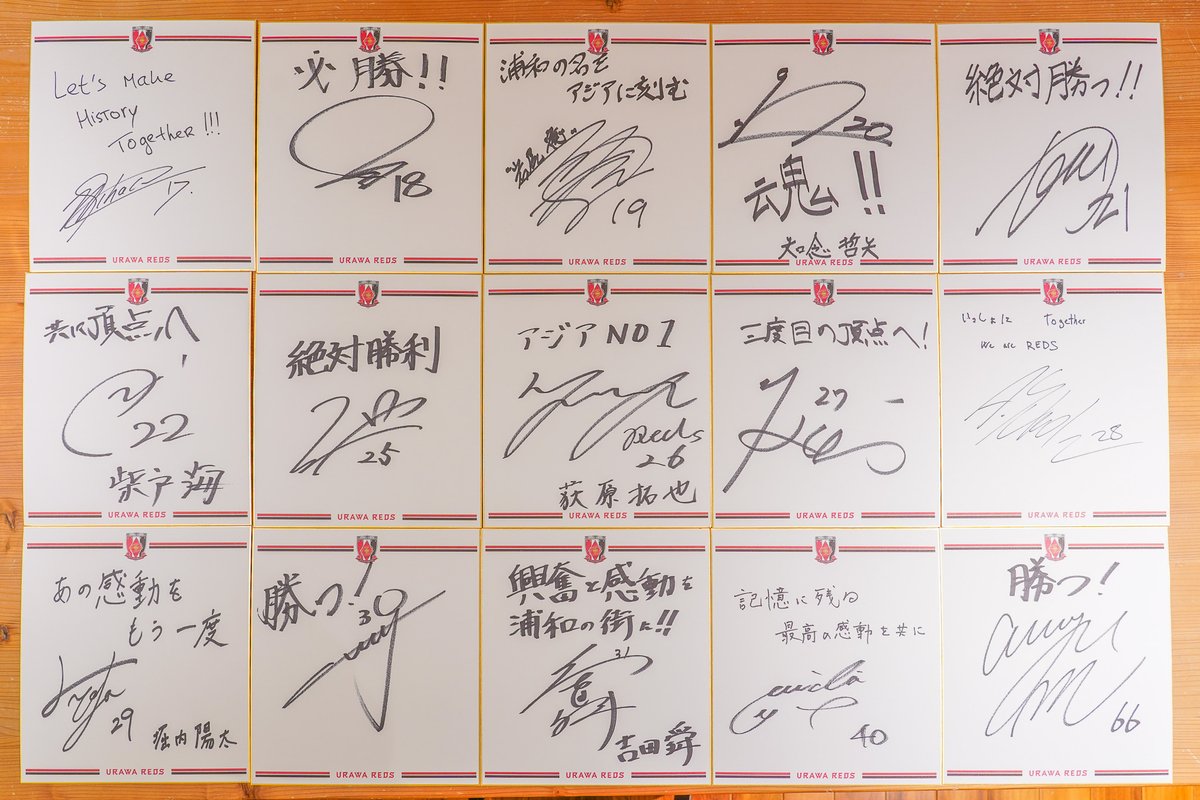 Let's Make
History
Together!!!
17.
URAWA REDS
必勝!!
18
URAWA REDS
浦和の名を
アジアに刻む
19
URAWA REDS
20
魂!!
知念 哲矢
URAWA REDS
絶対勝つ!!
21
URAWA REDS
共に頂点へ
22
柴戸 海
URAWA REDS
絶対勝利
25
URAWA REDS
アジア NO1
Reds
26
荻原拓也
URAWA REDS
三度目の頂点へ!
27
URAWA REDS
いっしょに Together
We are REDS
28
URAWA REDS
あの感動を
もう一度
29
堀内陽太
URAWA REDS
勝つ!
30
URAWA REDS
興奮と感動を
浦和の街に!!
31
吉田舜
URAWA REDS
記憶に残る
最高の感動を共に
40
URAWA REDS
勝つ!
66
URAWA REDS